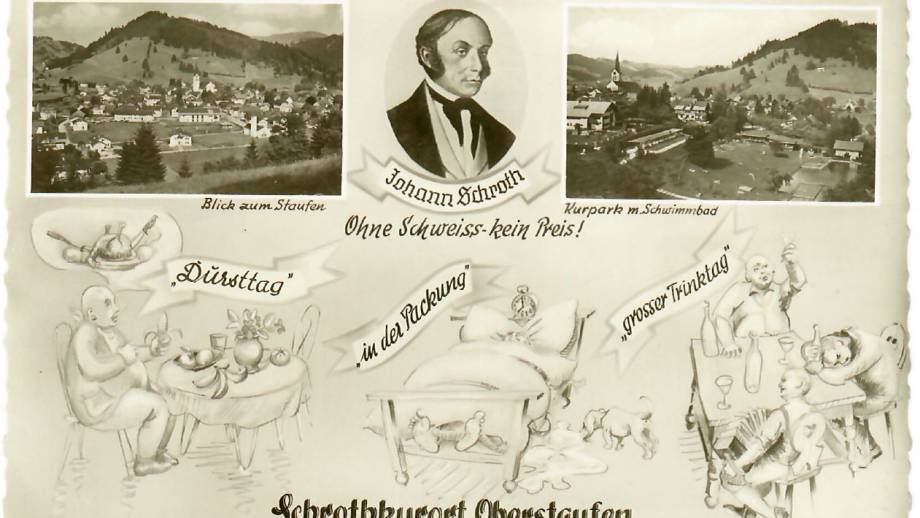 Johann Schroth
Blick zum Staufen
Kurpark m. Schwimmbad
Ohne Schweiss-kein Preis!
„Dursttag"
„in der Packung"
„grosser Trinktag"
Schrothkurort Oberstaufen